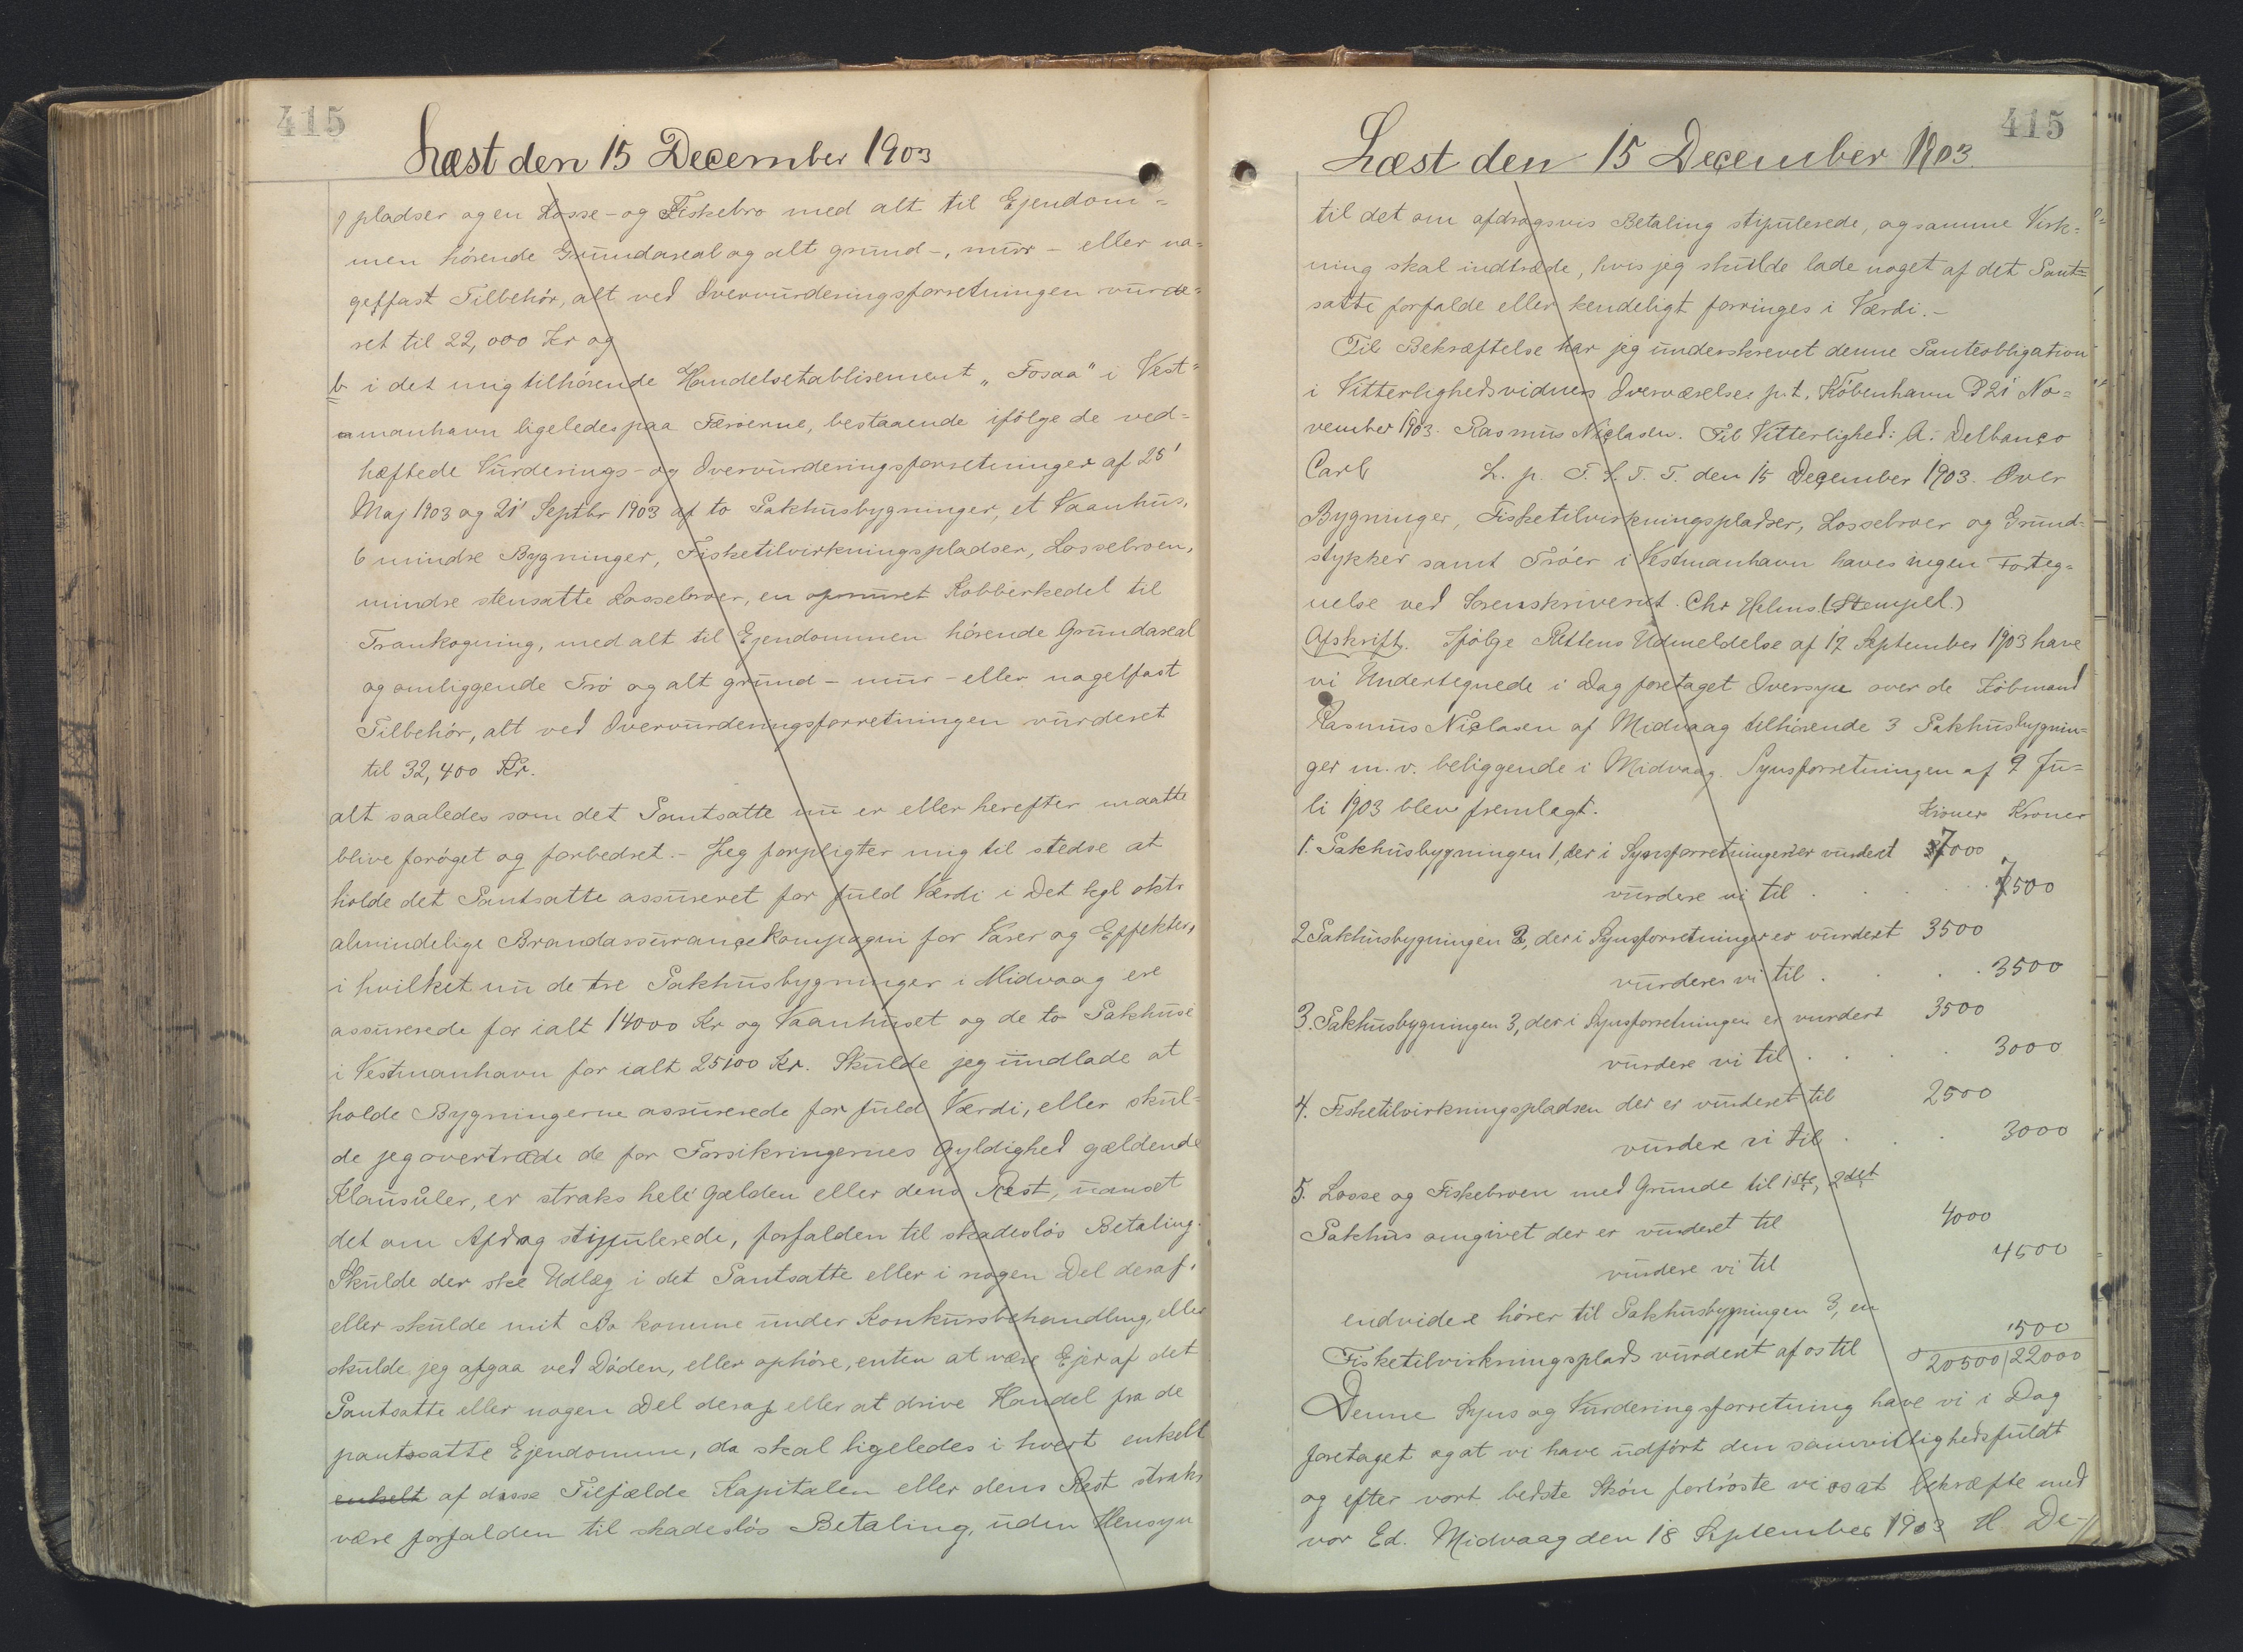 415
Læst den 15 December 1903
pladser og en Losse- og Fiskebro med alt til Ejendom=
men hörende Grundareal og alt grund-, mur- eller na=
gelfast Tilbehör, alt ved Overvurderingsforretningen vurde=
ret til 22,000 Kr og
b i det mig tilhörende Handelsetablisement „Fosaa" i Vest=
manhavn ligeledes paa Færöerne, bestaaende ifölge de ved=
hæftede Vurderings- og Overvurderingsforretninger af 25'
Maj 1903 og 21' Septbr 1903 af to Pakhusbygninger, et Vaanhus,
6 mindre Bygninger, Fisketilvirkningspladser, Lossebroen,
mindre stensatte Lossebroer, en opmuret Kobberkedel til
Trankogning, med alt til Ejendommen hörende Grundareal
og omliggende Trö og alt grund- mur- eller nagelfast
Tilbehör, alt ved Overvurderingsforretningen vurderet
til 32,400 Kr.
alt saaledes som det Pantsatte nu er eller herefter maatte
blive foröget og forbedret.- Jeg forpligter mig til stedse at
holde det Pantsatte assureret for fuld Værdi i Det kgl oktr
almindelige Brandassurançe Kompagni for Varer og Effekter,
i hvilket nu de tre Pakhusbygninger i Midvaag ere
assurerede for ialt 14000 Kr og Vaanhuset og de to Pakhuse
i Vestmanhavn for ialt 25100 Kr. Skulde jeg undlade at
holde Bygningerne assurerede for fuld Værdi, eller skul=
de jeg overtræde de for Forsikringernes Gyldighed gældende
Klausuler, er straks hele Gælden eller dens Rest, uanset
det om Afdrag stipulerede, forfalden til skadeslös Betaling.
Skulde der ske Udlæg i det Pantsatte eller i nogen Del deraf,
eller skulde mit Bo komme under Konkursbehandling, eller
skulde jeg afgaa ved Döden, eller ophöre, enten at være Ejer af det
Pantsatte eller nogen Del deraf eller at drive Handel fra de
pantssatte Ejendomme, da skal ligeledes i hvert enkelt
enkelt af disse Tilfælde Kapitalen eller dens Rest straks
være forfalden til skadeslös Betaling, uden Hensyn
415
Læst den 15 December 1903.
til det om afdragsvis Betaling stipulerede, og samme Virk=
ning skal indtræde, hvis jeg skulde lade noget af det Pant=
satte forfalde eller kendeligt forringes i Værdi.-
Til Bekræftelse har jeg underskrevet denne Panteobligation
i Vitterlighedsvidners Overværelse p.t. København D 21' No=
vember 1903. Rasmus Niclasen. Til Vitterlighed: A. Delbanço
Carl L. p. F. S. T. T. den 15 Deçember 1903. Over
Bygninger, Fisketilvirkningspladser, Lossebroer og Grund=
stykker samt Tröer i Vestmanhavn haves ingen Forteg=
nelse ved Sorenskriveriet. Chr Helms. (Stempel.)
Afskrift. Ifölge Rettens Udmeldelse af 17 September 1903 have
vi Undertegnede i Dag foretaget Oversyn over de Köbmand
Rasmus Niclasen af Midvaag tilhörende 3 Pakhusbygnin=
ger m.v. beliggende i Midvaag. Synsforretningen af 9 Ju=
li 1903 blev fremlagt. Kroner Kroner
1. Pakhusbygningen 1, der i Synsforretningen er vurderet 7000
vurdere vi til . . . . 7500
2 Pakhusbygningen 2, der i Synsforretninger er vurderet 3500
vurderes vi til . . . . 3500
3. Pakhusbygningen 3, der i Synsforretningen er vurdert 3500
vurdere vi til . . . . 3000
4. Fisketilvirkningspladsen der er vurderet til 2500
vurdere vi til . . . 3000
5. Losse og Fiskebroen med Grunde til 1ste, 2det
Pakhus omgivet der er vurderet til 4000
vurdere vi til 4500
endvidere hörer til Pakhusbygningen 3, en
Fisketilvirkningsplads vurderet af os til 500
20500/22000
Denne Syns og Vurderingsforretning have vi i Dag
foretaget og at vi have udfört den samvittighedsfuldt
og efter vort bedste Skön fortröste vi os at bekræfte med
vor Ed. Midvaag den 18 September 1903 H. De-